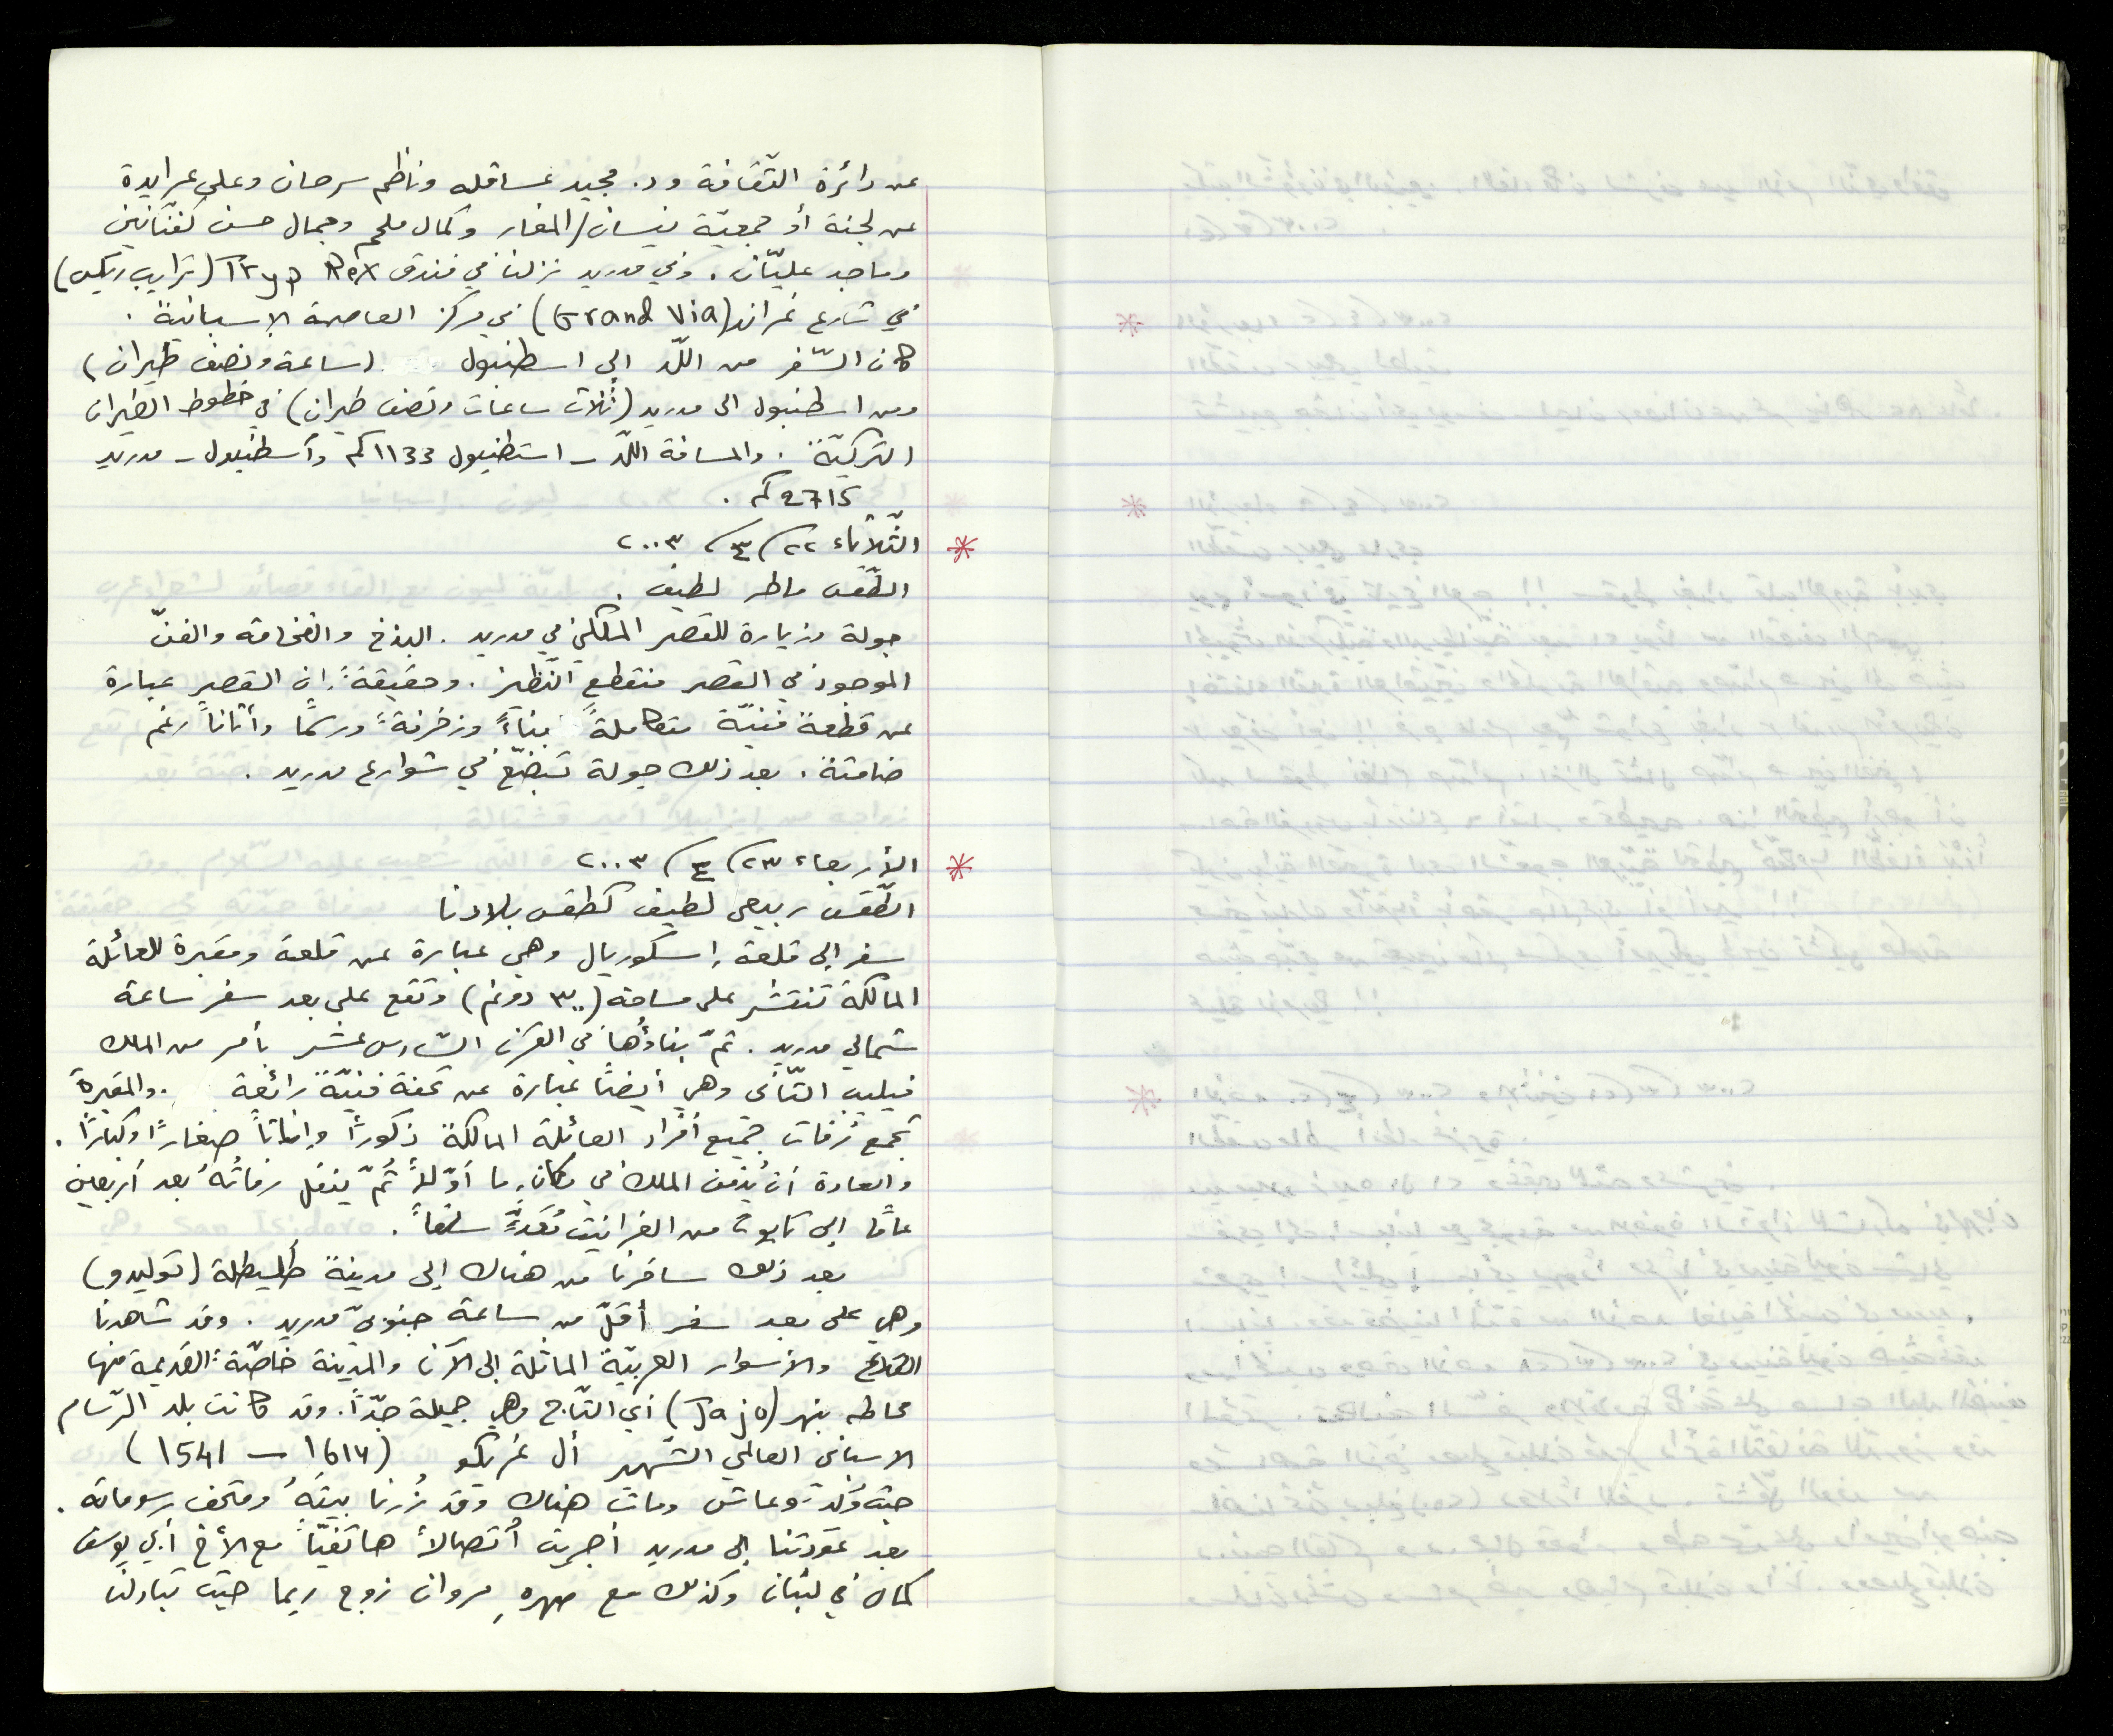 عن دائرة الثّقافة ود. مجيد عساقله وناظم سرحان وعلي عرايدة
عن لجنة أو جمعيّة نيسان/المغار وكمال ملحم وجمال حسن كفنّانين
وماجد عليّان. وفي مدريد نزلنا في فندق Tryp Rex (ترايب ريكس)
في شارع غراند (Grand Via) في مركز العاصمة الإسبانيّة.
كان السّفر من اللّد الى اسطنبول (ساعة ونصف طيران)
ومن اسطنبول الى مدريد (ثلاث ساعات ونصف طيران) في خطوط الطّيران
التركيّة. والمسافة اللّد - استطنبول 1133 كم وأسطنبول - مدريد
2715 كم.
* الثّلاثاء ٢٢/٤/٢٠٠٣
الطّقس ماطر لطيف.
جولة وزيارة للقصر الملكيّ في مدريد. البذخ والفخامة والفنّ
الموجود في القصر منقطع النّظير. وحقيقةً إن القصر عبارة
عن قطعة فنيّة متكاملةً بناءً وزخرفةً ورسمًا وأثاثاً رغم
ضخامته. بعد ذلك جولة تبضّع في شوارع مدريد.
* الأربعاء ٢٣/٤/٢٠٠٣
الطّقس ربيعي لطيف كطقس بلادنا
سفر إلى قلعة إسكوريال وهي عبارة عن قلعة ومقبرة للعائلة
المالكة تنتشر على مساحة (٣٠٠ دونم) وتقع على بعد سفر ساعة
شمالي مدريد. تمّ بناؤها في القرن السّادس عشر بأمر من الملك
فيليب الثّاني وهي أيضًا عبارة عن تحفة فنيّة رائعة. والمقبرة
تجمع رُفات جميع أفراد العائلة المالكة ذكوراً وإناثاً صغارًا وكبارًا.
والعادة أن يُدفن الملك في مكانٍ ما أوّلاً ثُمّ ينقل رفاتُهُ بعد أربعين
عامًا الى تابوت من الغرانيت مُعَدٍّ سلفاً.
بعد ذلك سافرنا من هناك إلى مدينة طليطلة (توليدو)
وهي على بعد سفر أقلّ من ساعة جنوبيّ مدريد. وقد شاهدنا
القلاع والأسوار العربيّة الماثلة إلى الآن والمدينة خاصّةً القديمة منها
محاطه بنهر (Tajo) أي التّاج وهي جميلة جدّاً. وقد كانت بلد الرّسّام
الاسباني العالمي الشّهير أل غريكو (1614 – 1541)
حيث وُلد وعاش ومات هناك وقد زُرنا بيتَهُ ومتحف رسوماته.
بعد عودتنا إلى مدريد أجريت أتصالاً هاتفيّاً مع الأخ أبي يوسف
كمال في لبنان وكذلك مع صهرهِ مروان زوج ريما حيث تبادلنا